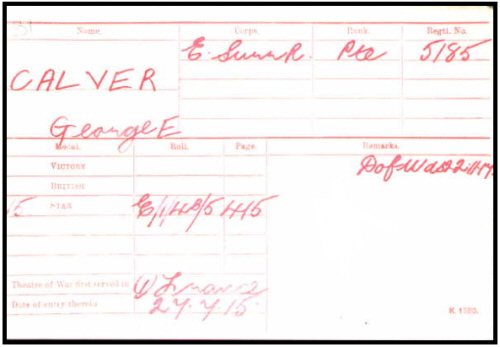 31
Name. Corps. Rank. Regtl. No.
CALVER E. Surr R. Pte 5185
George E
Medal. Roll. Page. Remarks.
VICTORY D of W
BRITISH
15 STAR E/1/4B/5 415
Theatre of War first served in (1) France
Date of entry therein 27.7.15.
K 1380.